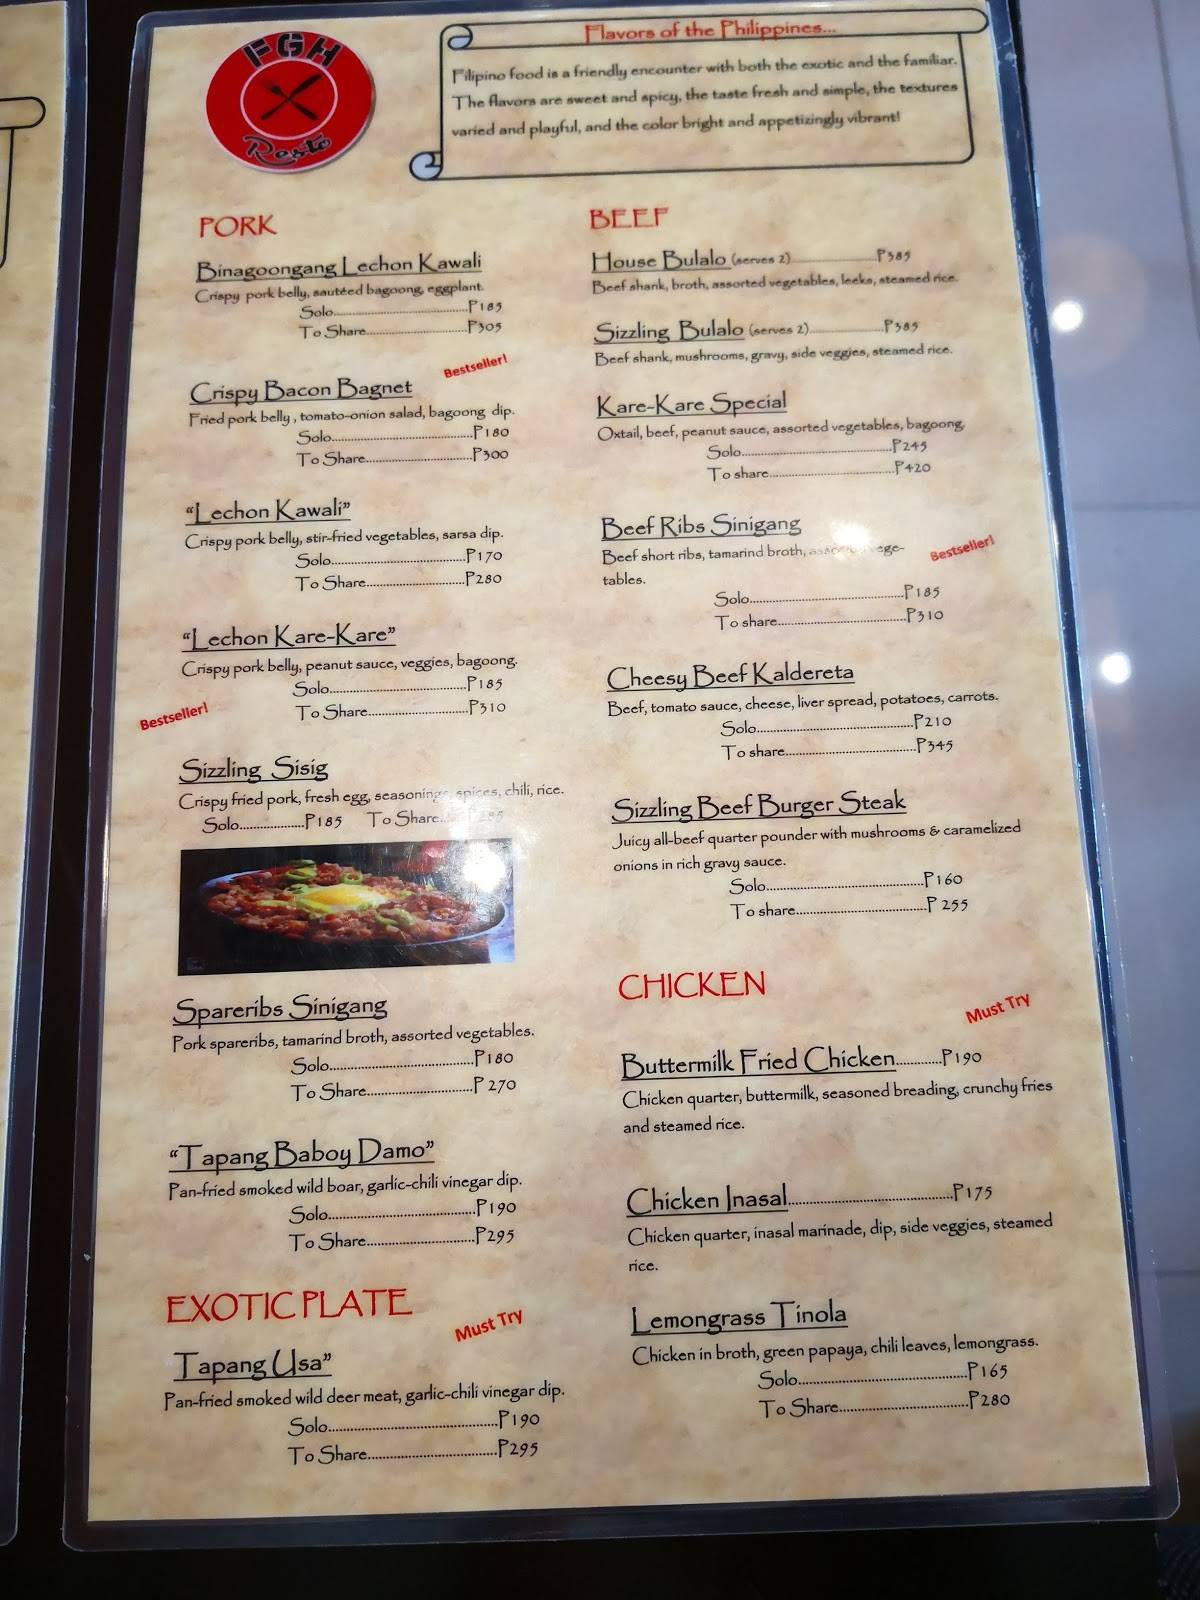 FGH
Resto
Flavors of the Philippines...
Filipino food is a friendly encounter with both the exotic and the familiar.
The flavors are sweet and spicy, the taste fresh and simple, the textures
varied and playful, and the color bright and appetizingly vibrant!
PORK
Binagoongang Lechon Kawali
Crispy pork belly, sautéed bagoong, eggplant.
Solo...P185
To Share...P305
Bestseller!
Crispy Bacon Bagnet
Fried pork belly , tomato-onion salad, bagoong dip.
Solo...P180
To Share...P300
"Lechon Kawali"
Crispy pork belly, stir-fried vegetables, sarsa dip.
Solo...P170
To Share...P280
"Lechon Kare-Kare"
Crispy pork belly, peanut sauce, veggies, bagoong.
Solo...P185
To Share...P310
Bestseller!
Sizzling Sisig
Crispy fried pork, fresh egg, seasonings, spices, chili, rice.
Solo...P185 To Share...
Spareribs Sinigang
Pork spareribs, tamarind broth, assorted vegetables.
Solo...P180
To Share...P 270
"Tapang Baboy Damo"
Pan-fried smoked wild boar, garlic-chili vinegar dip.
Solo...P190
To Share...P295
EXOTIC PLATE
Must Try
"Tapang Usa"
Pan-fried smoked wild deer meat, garlic-chili vinegar dip.
Solo...P190
To Share...P295
BEEF
House Bulalo (serves 2)...P385
Beef shank, broth, assorted vegetables, leeks, steamed rice.
Sizzling Bulalo (serves 2)...P385
Beef shank, mushrooms, gravy, side veggies, steamed rice.
Kare-Kare Special
Oxtail, beef, peanut sauce, assorted vegetables, bagoong,
Solo...P245
To share...P420
Beef Ribs Sinigang
Beef short ribs, tamarind broth, assorted vege-
tables.
Bestseller!
Solo...P185
To share...P310
Cheesy Beef Kaldereta
Beef, tomato sauce, cheese, liver spread, potatoes, carrots.
Solo...P210
To share...P345
Sizzling Beef Burger Steak
Juicy all-beef quarter pounder with mushrooms & caramelized
onions in rich gravy sauce.
Solo...P160
To share...P 255
CHICKEN
Must Try
Buttermilk Fried Chicken...P190
Chicken quarter, buttermilk, seasoned breading, crunchy fries
and steamed rice.
Chicken Inasal...P175
Chicken quarter, inasal marinade, dip, side veggies, steamed
rice.
Lemongrass Tinola
Chicken in broth, green papaya, chili leaves, lemongrass.
Solo...P165
To Share...P280